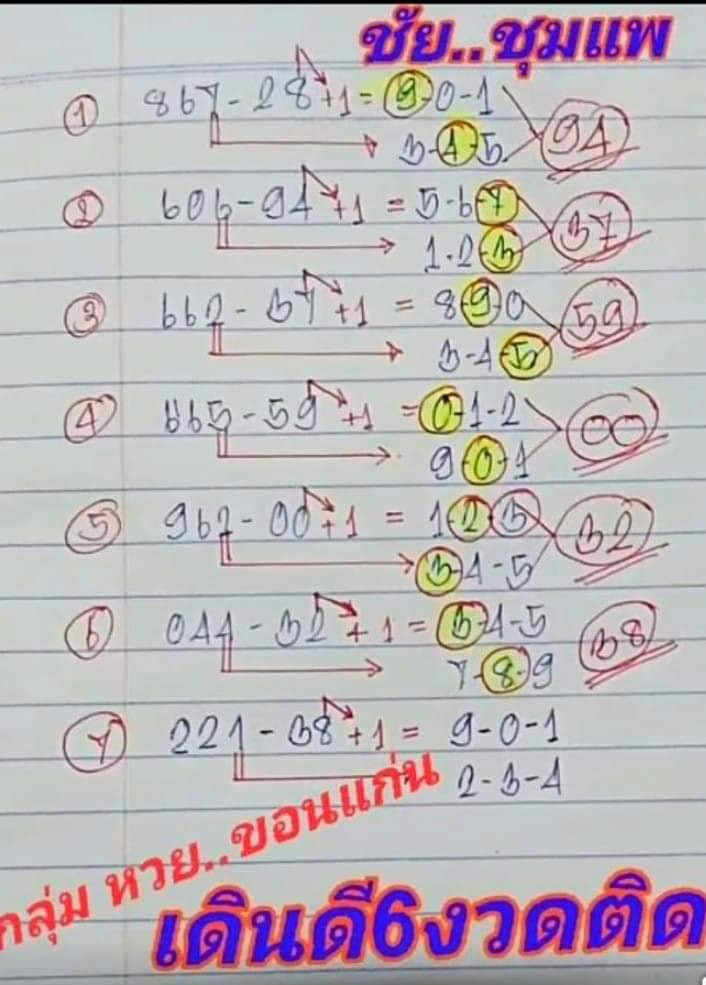 ชัย..ชุมแพ
① 867-28+1=9-0-1 94
3-4-5
② 606-94+1=5-6-7 37
1-2-3
③ 662-37+1=8-9-0 59
3-4-5
④ 665-59+1=0-1-2 00
9-0-1
⑤ 962-00+1=1-2-3 32
3-4-5
⑥ 044-32+1=3-4-5 38
7-8-9
⑦ 221-38+1=9-0-1
2-3-4
กลุ่ม หวย..ขอนแก่น
เดินดี6งวดติด